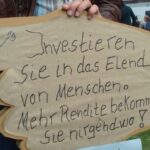 Investieren
Sie in das Elend
von Menschen.
Mehr Rendite bekommen
Sie nirgendwo!